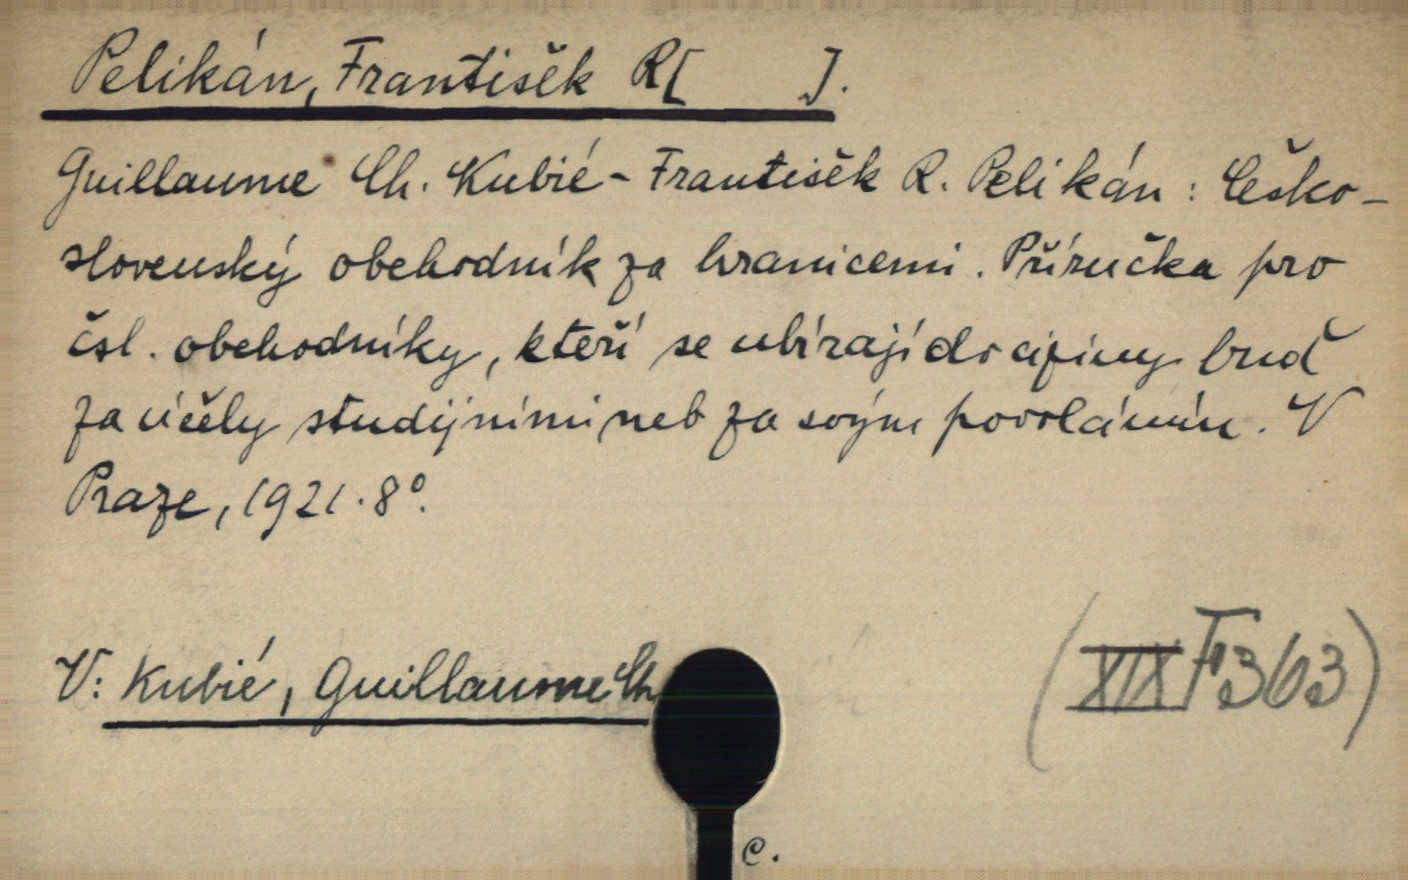 Pelikán, František R[ ].
Guillaume Ch. Kubié - František R. Pelikán : Česko-
slovenský obchodník za hranicemi. Příručka pro
čsl. obchodníky, kteří se ubírají do ciziny buď
za účely studijními neb za svým povoláním. V
Praze, 1921. 8°.
V: Kubié, Guillaume Ch
(XIX F 363)
c.